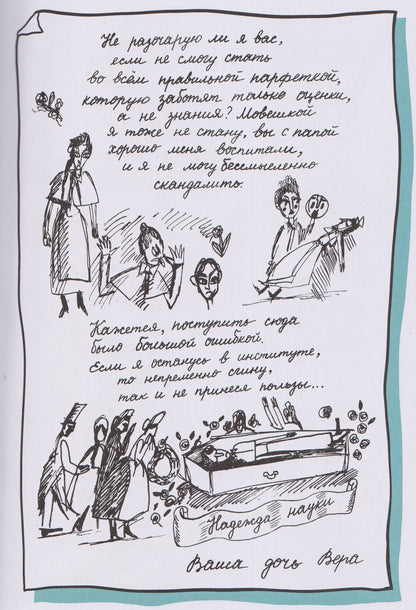 Не разочарую ли я вас,
если не смогу стать
во всём правильной парфеткой,
которую заботят только оценки,
а не знания? Мовешкой
я тоже не стану, вы с папой
хорошо меня воспитали,
и я не могу бессмысленно
скандалить.
Кажется, поступить сюда
было большой ошибкой.
Если я останусь в институте,
то непременно сгину,
так и не принеся пользы...
Надежда науки
Ваша дочь Вера